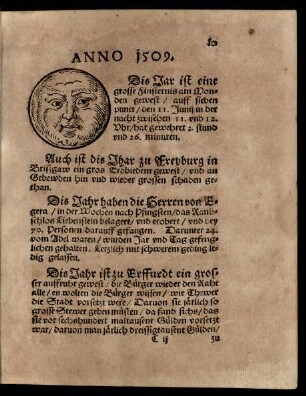 ANNO 1509.
Dis Jar ist eine
grosse Finsternis am Mon-
den gewest / auff sieben
vnnr / den 11. Junij in der
nacht zwischen 11. vnd 12.
Vhr / hat gewehret 2. stund
vnd 26. minuten.
Auch ist dis Jhar zu Freyburg in
Brißgaw ein gros Erdbidem gewest / vnd an
Gebewden hin vnd wieder grossen schaden ge-
than.
Dis Jahr haben die Herren von E-
gera / in der Wochen nach Pfingsten / das Raub-
schlos Liebenstein belagert / vnd erobert / vnd bey
90. Personen darauff gefangen. Darunter 24.
vom Adel waren / wurden Jar vnd Tag gefeng-
lichen gehalten. Letzlich mit schwerem geding le-
dig gelassen.
Dis Jahr ist zu Erffurdt ein gros-
ser auffruhr gewest / die Bürger wieder den Raht
alle / es wolten die Bürger wissen / wie Thewer
die Stadt vorsetzt were / Daruon sie järlich so
grosse Stewer geben müsten / da fand sichs / das
sie vor sechshundert maltausent Gülden vorsetzt
war / daruon man järlich dreissigtausent Gülden /
C ij
zu